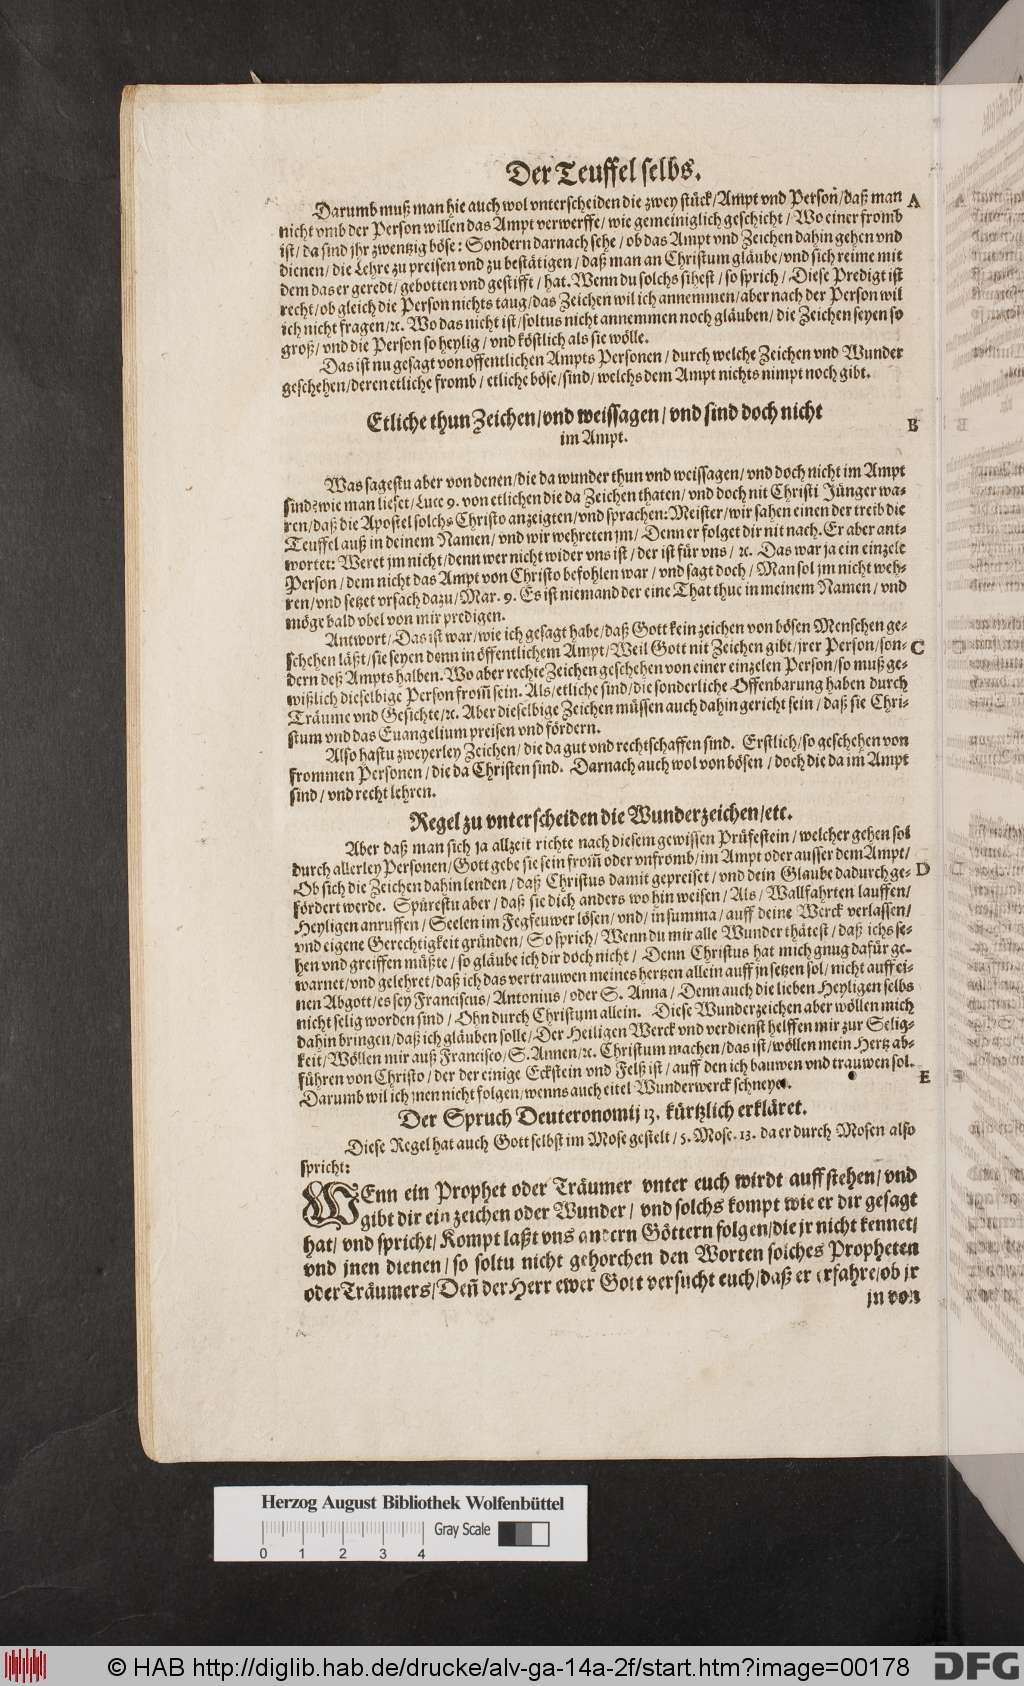 Der Teuffel selbs.
Darumb muß man hie auch wol vnterscheiden die zwey stück/Ampt vnd Person/daß man A
nicht vmb der Person willen das Ampt verwerffe/wie gemeiniglich geschicht/Wo einer fromb
ist/da sind jhr zwentzig böse: Sondern darnach sehe/ob das Ampt vnd Zeichen dahin gehen vnd
dienen/die Lehre zu preisen vnd zu bestätigen/daß man an Christum gläube/vnd sich reime mit
dem das er geredt/gebotten vnd gestifft/hat. Wenn du solchs sihest/so sprich/Diese Predigt ist
recht/ob gleich die Person nichts taug/das Zeichen wil ich annemmen/aber nach der Person wil
ich nicht fragen/ꝛc. Wo das nicht ist/soltus nicht annemmen noch gläuben/die Zeichen seyen so
groß/vnd die Person so heylig/vnd köstlich als sie wölle.
Das ist nu gesagt von offentlichen Ampts Personen/durch welche Zeichen vnd Wunder
geschehen/deren etliche fromb/etliche böse/sind/welchs dem Ampt nichts nimpt noch gibt.
Etliche thun Zeichen/vnd weissagen/vnd sind doch nicht B
im Ampt.
Was sagestu aber von denen/die da wunder thun vnd weissagen/vnd doch nicht im Ampt
sind? wie man lieset/Luce 9. von etlichen die da Zeichen thaten/vnd doch nit Christi Jünger wa-
ren/daß die Apostel solchs Christo anzeigten/vnd sprachen: Meister/wir sahen einen der treib die
Teuffel auß in deinem Namen/vnd wir wehreten jm/Denn er folget dir nit nach. Er aber ant-
wortet: Weret jm nicht/denn wer nicht wider vns ist/der ist für vns/ꝛc. Das war ja ein einzele
Person/dem nicht das Ampt von Christo befohlen war/vnd sagt doch/Man sol jm nicht weh-
ren/vnd setzet vrsach dazu/Mar. 9. Es ist niemand der eine That thue in meinem Namen/vnd
möge bald vbel von mir predigen.
Antwort/Das ist war/wie ich gesagt habe/daß Gott kein zeichen von bösen Menschen ge-
schehen läßt/sie seyen denn in öffentlichem Ampt/Weil Gott nit Zeichen gibt/jrer Person/son- C
dern deß Ampts halben. Wo aber rechte Zeichen geschehen von einer einzelen Person/so muß ge-
wißlich dieselbige Person from̃ sein. Als/etliche sind/die sonderliche Offenbarung haben durch
Träume vnd Gesichte/ꝛc. Aber dieselbige Zeichen müssen auch dahin gericht sein/daß sie Chri-
stum vnd das Euangelium preisen vnd fördern.
Also hastu zweyerley Zeichen/die da gut vnd rechtschaffen sind. Erstlich/so geschehen von
frommen Personen/die da Christen sind. Darnach auch wol von bösen/doch die da im̃ Ampt
sind/vnd recht lehren.
Regel zu vnterscheiden die Wunderzeichen/etc.
Aber daß man sich ja allzeit richte nach diesem gewissen Prüfestein/welcher gehen sol
durch allerley Personen/Gott gebe sie sein from̃ oder vnfromb/im Ampt oder ausser dem Ampt/
Ob sich die Zeichen dahin lenden/daß Christus damit gepreiset/vnd dein Glaube dadurch ge- D
fördert werde. Spürestu aber/daß sie dich anders wo hin weisen/Als/Wallfahrten lauffen/
Heyligen anruffen/Seelen im Fegfeuwer lösen/vnd/in summa/auff deine Werck verlassen/
vnd eigene Gerechtigkeit gründen/So sprich/Wenn du mir alle Wunder thätest/daß ichs se-
hen vnd greiffen müßte/so gläube ich dir doch nicht/Denn Christus hat mich gnug dafür ge-
warnet/vnd gelehret/daß ich das vertrauwen meines hertzen allein auff jn setzen sol/nicht auff ei-
nen Abgott/es sey Franciscus/Antonius/oder S. Anna/Denn auch die lieben Heyligen selbs
nicht selig worden sind/Ohn durch Christum allein. Diese Wunderzeichen aber wöllen mich
dahin bringen/daß ich gläuben solle/Der Heiligen Werck vnd verdienst helffen mir zur Selig-
keit/Wöllen mir auß Francisco/S. Annen/ꝛc. Christum machen/das ist/wöllen mein Hertz ab-
führen von Christo/der der einige Eckstein vnd Felß ist/auff den ich bauwen vnd trauwen sol. E
Darumb wil ich jnen nicht folgen/wenns auch eitel Wunderwerck schneyet.
Der Spruch Deuteronomij 13. kürtzlich erkläret.
Diese Regel hat auch Gott selbst im Mose gestelt/5. Mose. 13. da er durch Mosen also
spricht:
WEnn ein Prophet oder Träumer vnter euch wirdt auff stehen/vnd
gibt dir ein zeichen oder Wunder/vnd solchs kompt wie er dir gesagt
hat/vnd spricht/Kompt laßt vns andern Göttern folgen/die jr nicht kennet/
vnd jnen dienen/so soltu nicht gehorchen den Worten solches Propheten
oder Träumers/Den̄ der Herr ewer Gott versucht euch/daß er erfahre/ob jr
jn von
Herzog August Bibliothek Wolfenbüttel
Gray Scale
0 1 2 3 4
© HAB http://diglib.hab.de/drucke/alv-ga-14a-2f/start.htm?image=00178 DFG